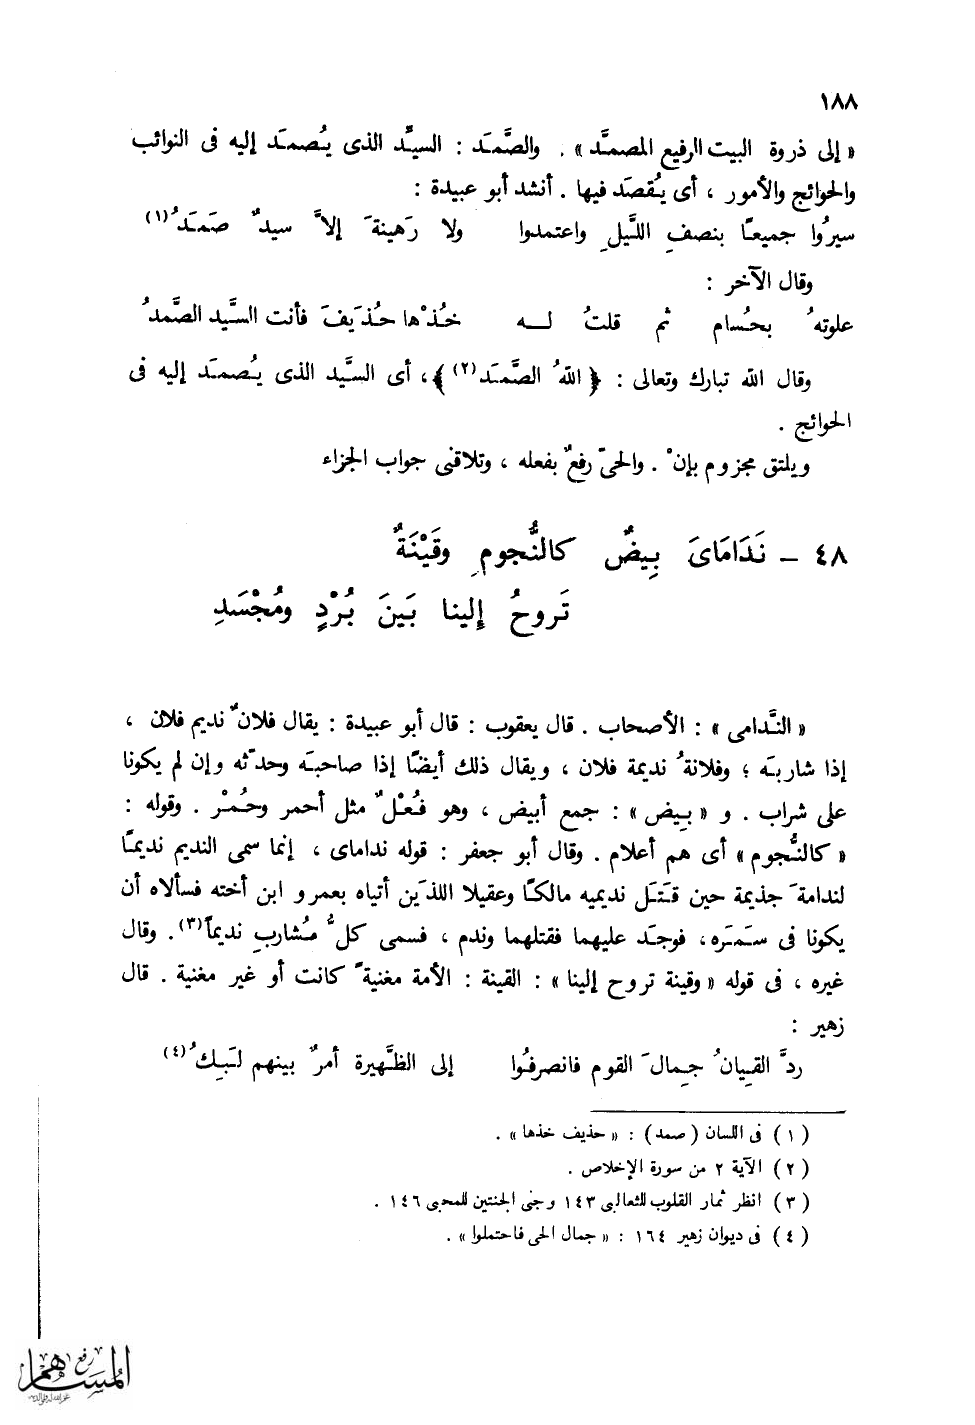 ١٨٨
« إلى ذروة البيت الرفيع المصمَّد » . والصَّمَد : السيِّد الذى يُصمَد إليه فى النوائب
والحوائج والأمور ، أى يُقصَد فيها . أنشد أبو عبيدة :
سيرُوا جميعًا بنصفِ اللَّيلِ واعتمدوا ولا رَهينةَ إلاَّ سيدٌ صَمَدُ(١)
وقال الآخر :
علوتهُ بحُسام ثم قلتُ لـه خُذْها حُذَيفَ فأنت السَّيد الصَّمدُ
وقال الله تبارك وتعالى : ﴿ اللهُ الصَّمَد(٢) ﴾، أى السَّيد الذى يُصمَد إليه فى
الحوائج .
ويلتق مجزوم بإنْ . والحىّ رفعٌ بفعله ، وتلاقنى جواب الجزاء
٤٨ – نَدَامَاىَ بِيضٌ كالنُّجومِ وقَيْنَةٌ
تَروحُ إلينا بَينَ بُرْدٍ ومُجْسَدِ
« النَّدامى » : الأصحاب . قال يعقوب : قال أبو عبيدة : يقال فلانٌ نديم فلان ،
إذا شاربَه ؛ وفلانةُ نديمة فلان ، ويقال ذلك أيضًا إذا صاحبَه وحدّثه وإن لم يكونا
على شراب . و « بِيض » : جمع أبيض ، وهو فُعْلٌ مثل أحمر وحُمْر . وقوله :
« كالنُّجوم » أى هم أعلام . وقال أبو جعفر : قوله نداماى ، إنما سمى النديم نديمًا
لندامةَ جذيمة حين قَتَل نديميه مالكًا وعقيلا اللذَين أتياه بعمرو ابن أخته فسألاه أن
يكونا فى سَمَره، فوجَد عليهما فقتلهما وندم ، فسمى كلُّ مُشاربٍ نديماً(٣). وقال
غيره ، فى قوله « وقينة تروح إلينا » : القينة : الأمة مغنيةً كانت أو غير مغنية . قال
زهير :
ردَّ القِيانُ جِمالَ القوم فانصرفُوا إلى الظَّهيرة أمرٌ بينهم لَبِكُ(٤)
( ١ ) فى اللسان ( صمد ) : « حذيف خذها » .
( ٢ ) الآية ٢ من سورة الإخلاص .
( ٣ ) انظر ثمار القلوب للثعالبى ١٤٣ وجنى الجنتين للمحبى ١٤٦ .
( ٤ ) فى ديوان زهير ١٦٤ : « جمال الحى فاحتملوا » .